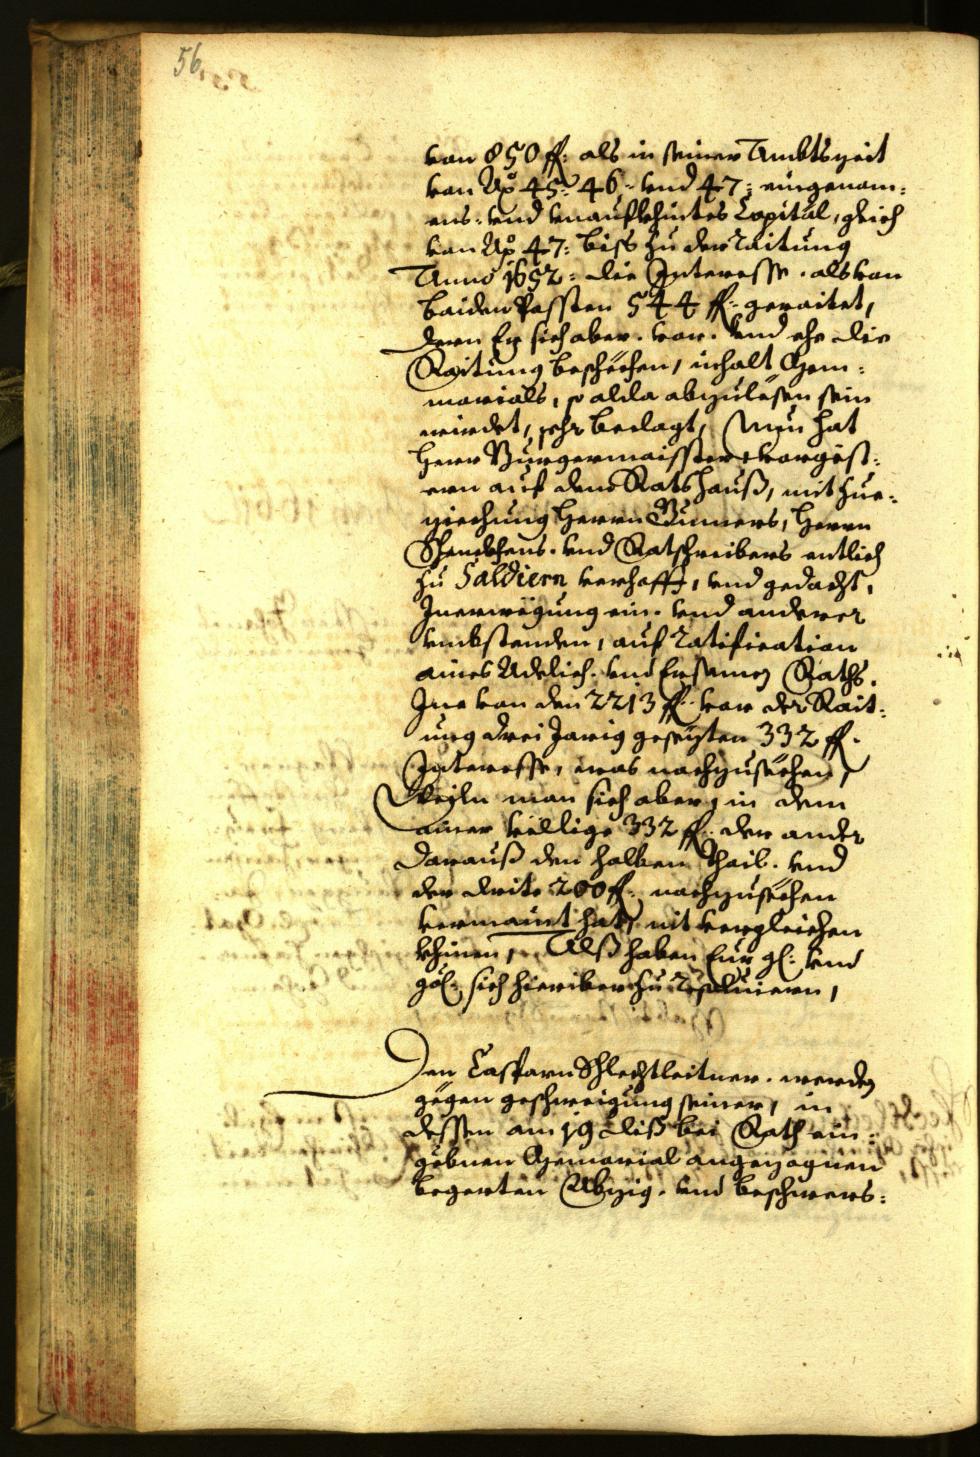 56
von 850 ff: als in seiner Ambtszeit
von Aō 45: 46: vnd 47: eingenom:
ens: vnd vnaufkhintes Capital, gleich
von Aō 47: biß zu der Raitung
Anno 1652: die Interesse. als von
baiden Possten 544 ff: geraitet,
deren Er sich aber. vor. vnd ehe die
Raitung beschechen, inhalt Mem:
morials, so alda abzulesen sein
wirdet, sehr beclagt, Nun hat
Herr Burgermaisster vorgesst:
ern auf dem Rats Hauß, mit zue:
ziechung Herrn Herrn
vnd Ratschreibers entlich
zu Saldiern verhofft, vnd gedacht,
Inerwegung ein. vnd anderer
vmbstenden, auf ratification
aines Adelich. vnd Ersamen Raths.
Ime von den 2213 ff: vor der Rait:
ung drei Jarig gesezten 332 ff.
Interesse, was nachzusechen,
Weiln man sich aber, in dem
ainer vellige 332 ff: der ander
darauß den halben thail. vnd
der drite 200 ff: nachzusechen
vermaint hat, nit vergleichen
khinen, Alß haben Eur gl: vnd
gl: sich hieriber zu Resoluiern,
Den Casparn Schlechtleitner. werden
gegen geschweigung seiner, in
dessen am 19 diß bei Rath ein:
gebnen Memorial angezognen
begerten Abzüg. vnd beschwers: